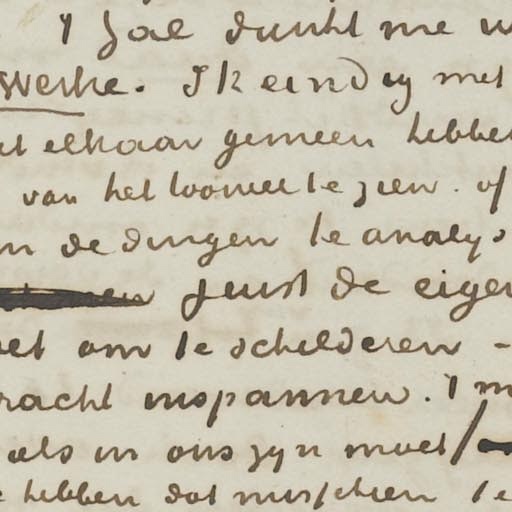 't zal dunkt me w
werke. Ik eindig met
et elkaar gemeen hebben
van het tooneel te zien. of
n de dingen te analys
juist de eigen
et om te schilderen -
racht inspannen. 't m
als in ons zyn moet
e hebben dat misschien te